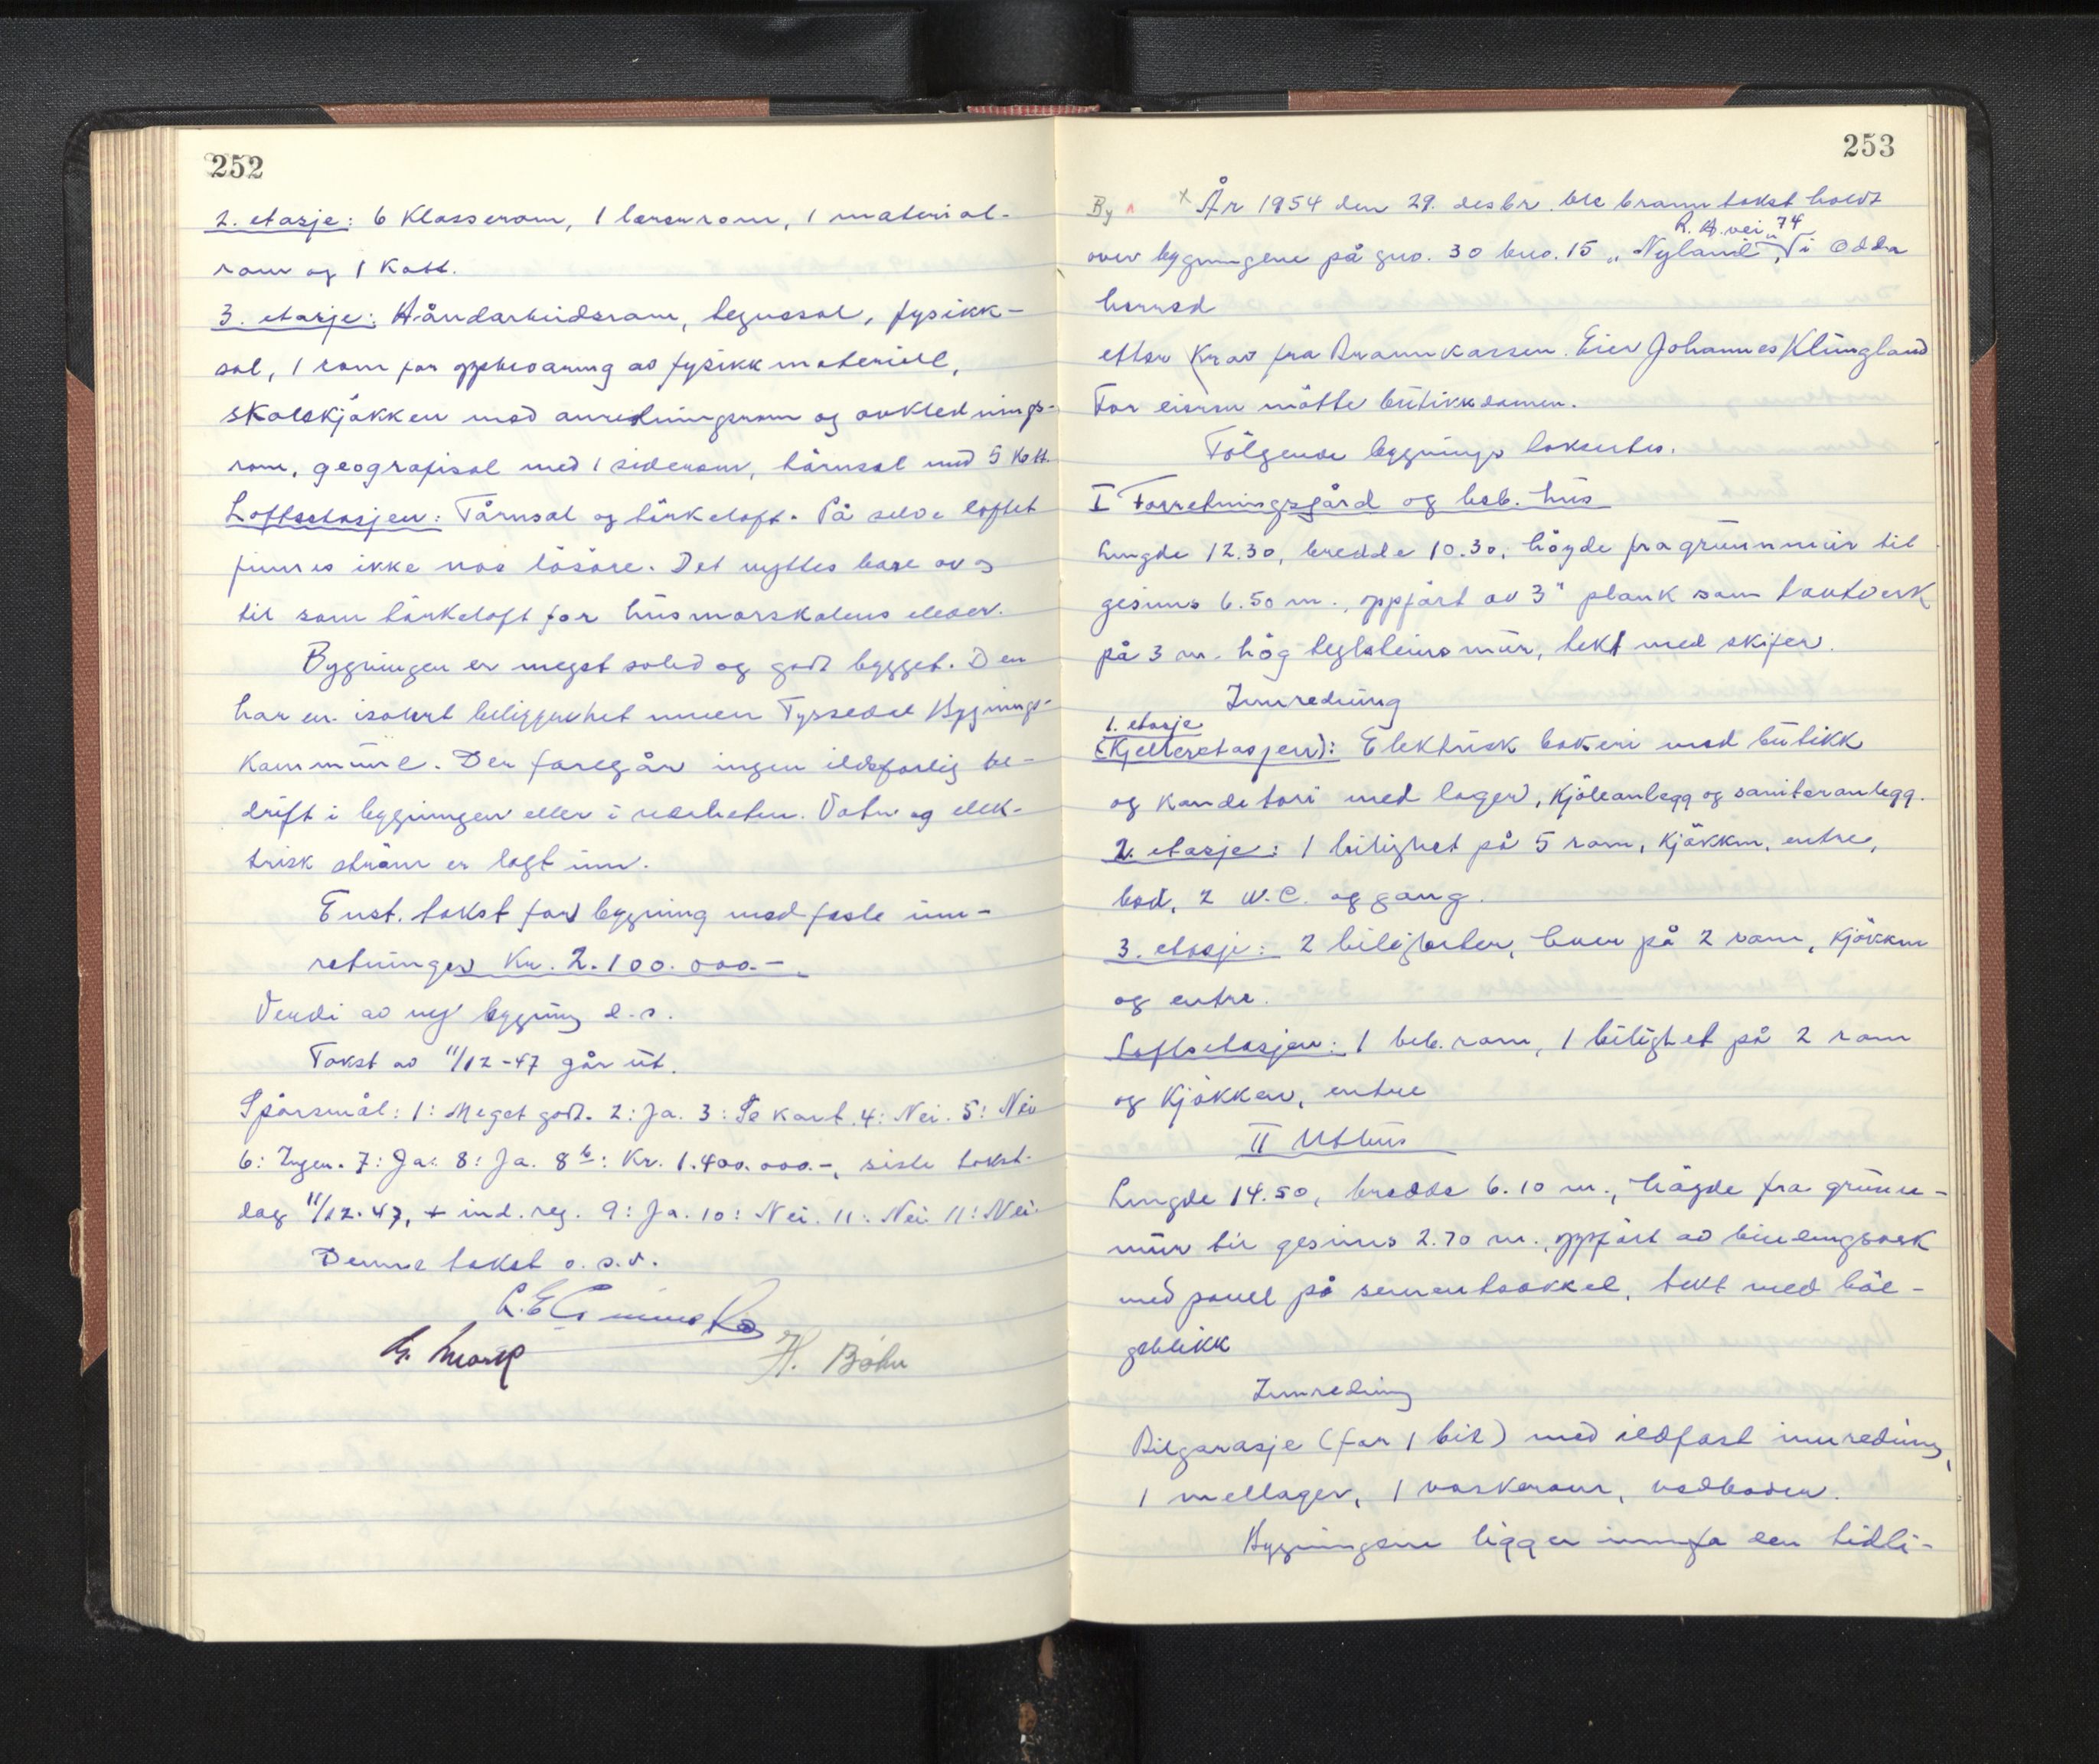 252
2. etasje: 6 Klasserom, 1 lærerrom, 1 material-
rom og 1 Kott.
3. etasje: Håndarbeidsrom, tegnesal, fysikk-
sal, 1 rom for oppbevaring av fysikkmateriell,
skolekjøkken med anretningsrom og avklednings-
rom, geografisal med 1 siderom, tårnsal med 5 Kott.
Loftsetasjen: Tårnsal og tørkeloft. På selve loftet
finnes ikke noe løsøre. Det nyttes bare av og
til som tørkeloft for husmorskolens elever.
Bygningen er meget solid og godt bygget. Den
har en isolert beliggenhet innen Tyssedal Bygnings-
kommune. Der foregår ingen ildsfarlig be-
drift i bygningen eller i nærheten. Vatn og elek-
trisk strøm er lagt inn.
Enst. takst for bygning med faste inn-
retninger Kr. 2.100.000.-
Verdi av ny bygning d.s.
Takst av 11/12-47 går ut.
Spørsmål: 1: Meget godt. 2: Ja. 3: Se kart. 4: Nei. 5: Nei
6: Ingen. 7: Ja. 8: Ja. 8b: Kr. 1.400.000.-, siste takst-
dag 11/12-47, + ind. reg. 9: Ja. 10: Nei. 11: Nei 11: Nei.
Denne takst o.s.v.
H. Bøhn
253
By × År 1954 den 29. desbr. ble branntakst holdt
R. A. vei 74
over bygningene på gno. 30 bno. 15 „Nyland“, i Odda
herred
etter Krav fra Brannkassen. Eier Johannes Klungland
For eieren møtte butikkdamen.
Følgende bygnings taksertes.
I Forretningsgård og beb. hus
Lengde 12.30, bredde 10.30, høyde fra grunnmur til
gesims 6.50 m., oppført av 3" plank som tavtverk
på 3 m. høg teglsteinsmur, tekt med skifer.
Innredning
1. etasje
(Kjelleretasjen): Elektrisk bakeri med butikk
og konditori med lager, Kjøleanlegg og saniteranlegg.
2. etasje: 1 leilighet på 5 rom, Kjøkken, entre,
bad, 2 W.C. og gang.
3. etasje: 2 leiligheter, hver på 2 rom, Kjøkken
og entre.
Loftsetasjen: 1 beb. rom, 1 leilighet på 2 rom
og Kjøkken, entre
II Uthus
Lengde 14.50, bredde 6.10 m., høyde fra grunn-
mur til gesims 2.70 m., oppført av bindingsverk
med panel på sementsokkel, tekt med bøl-
geblikk
Innredning
Bilgarasje (for 1 bil) med ildfast innredning,
1 mellager, 1 vaskerom, vedboder.
Bygningene ligger innafor den tidli-